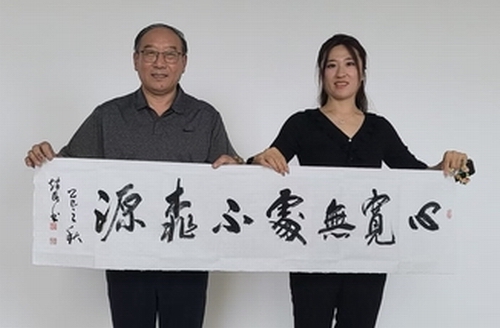 心寬無處不桃源
乙巳之秋
书